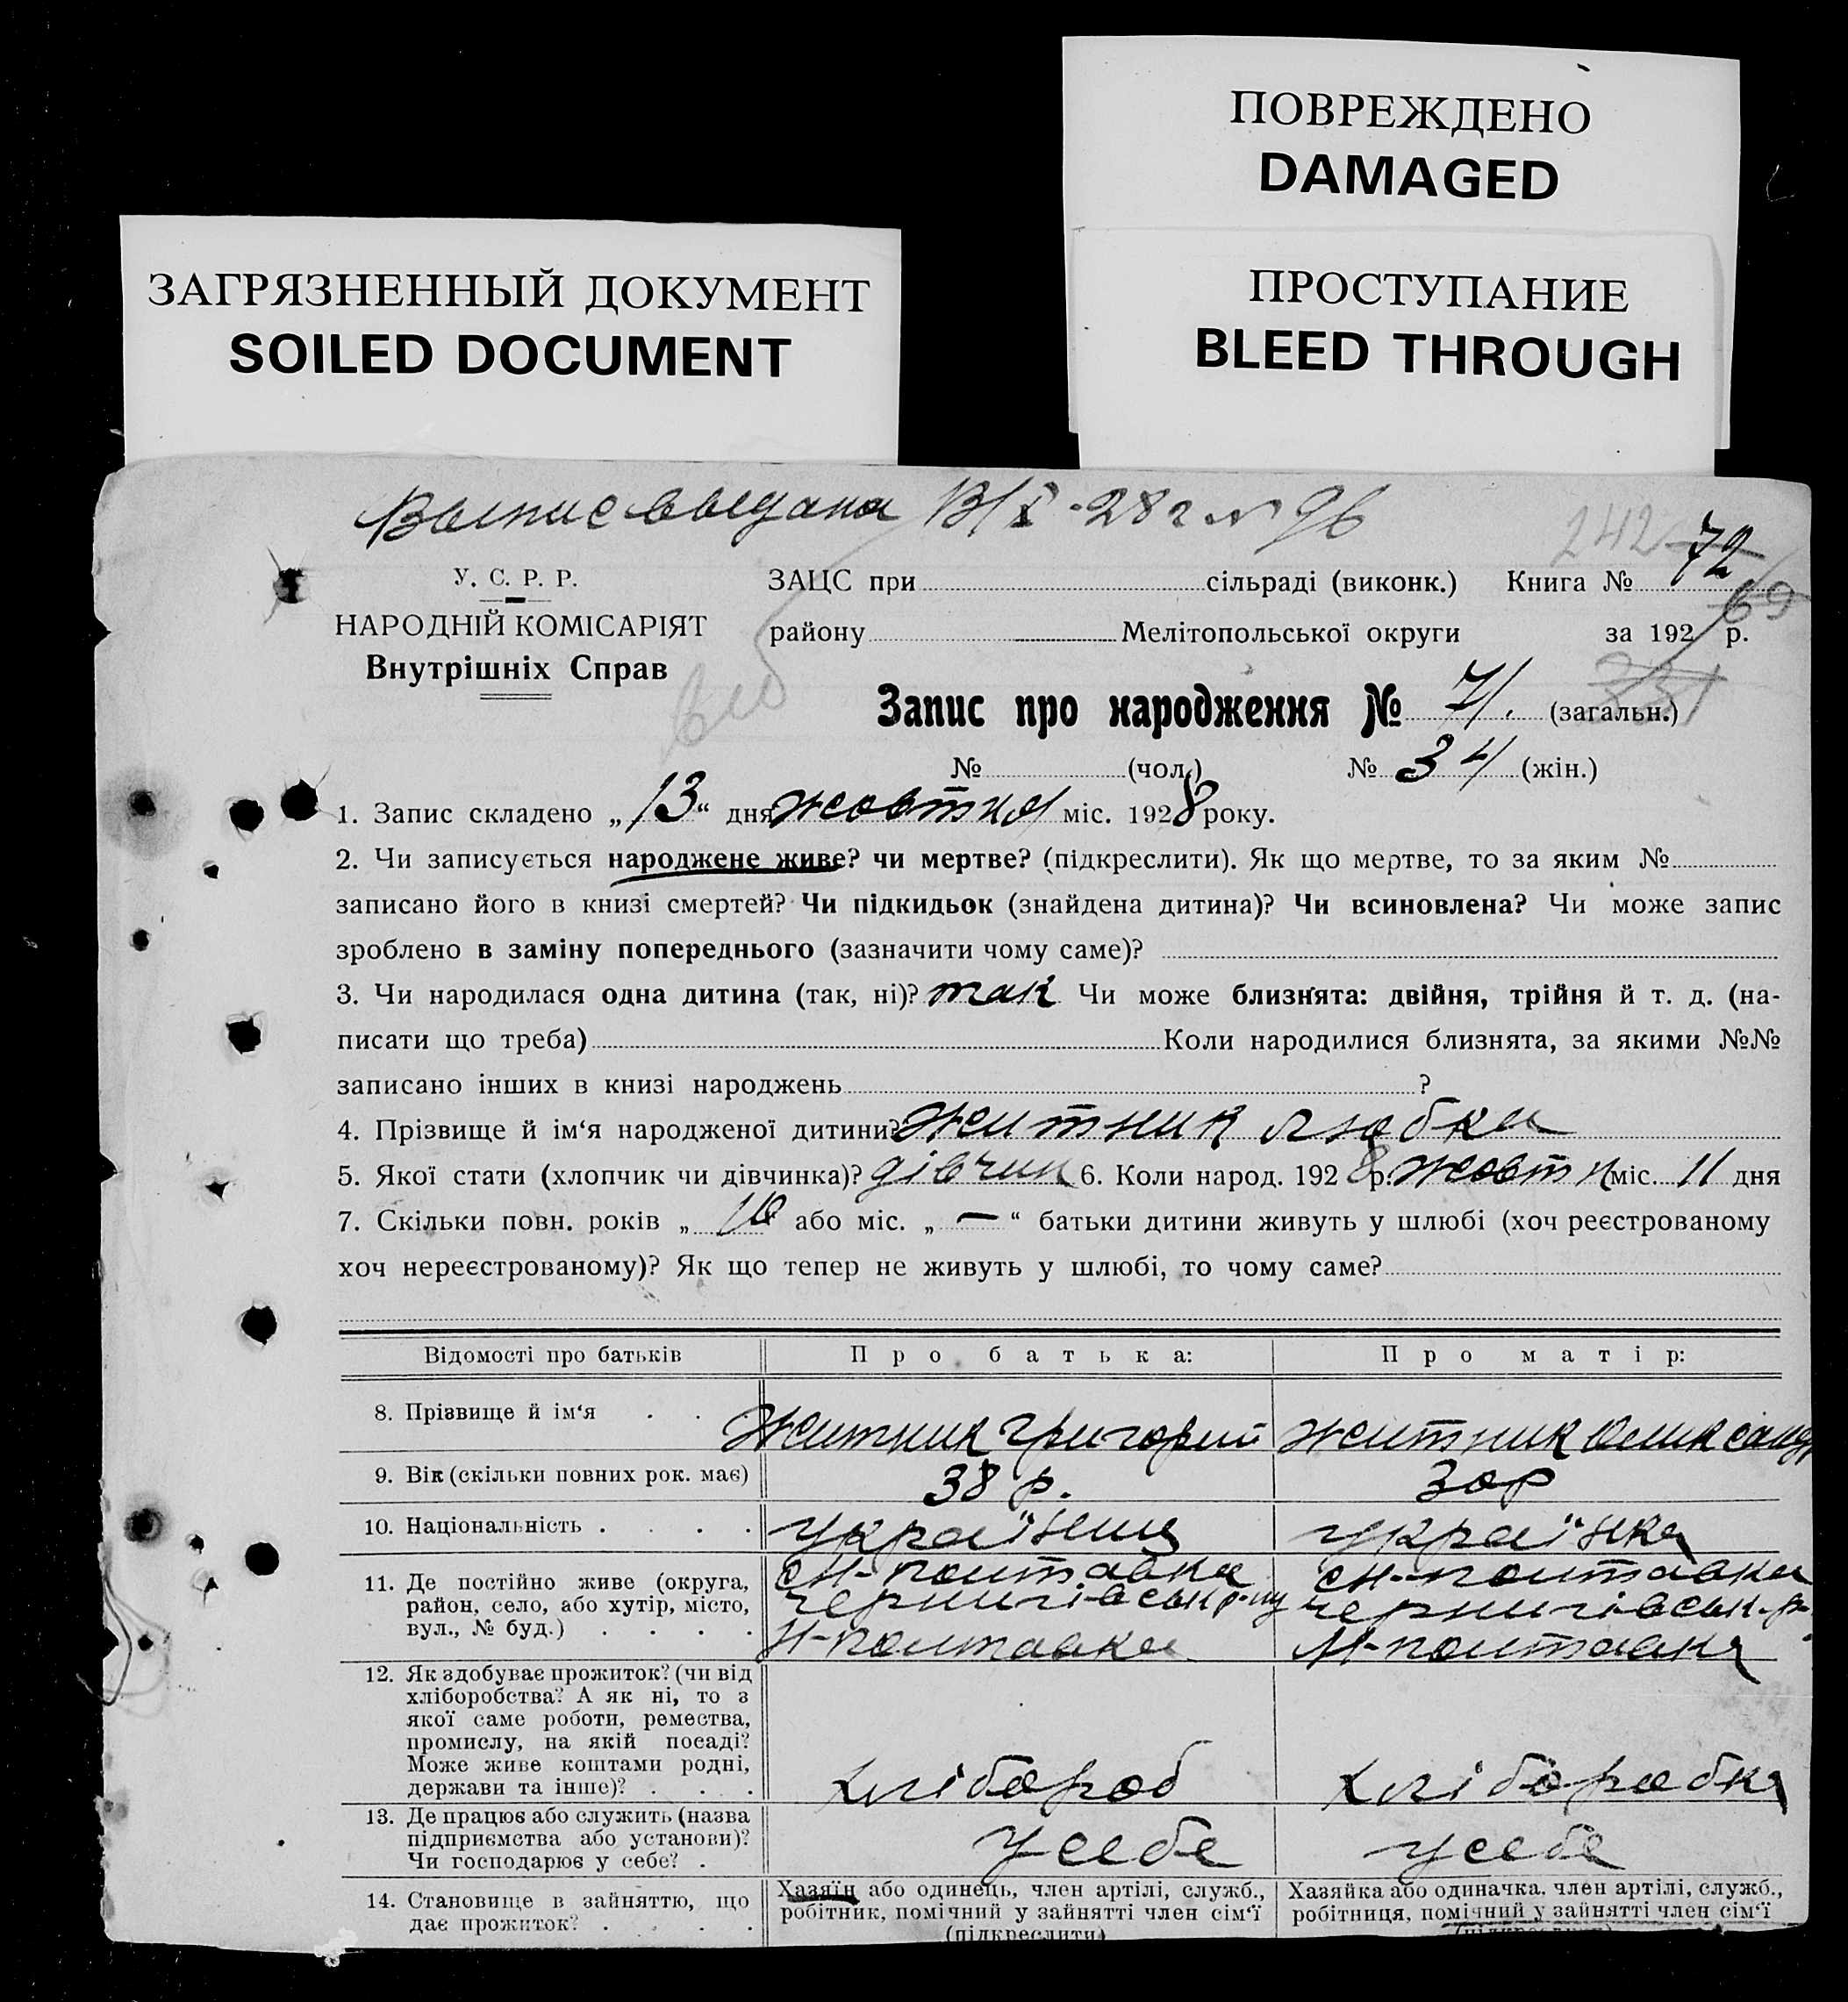 ПОВРЕЖДЕНО
DAMAGED
ЗАГРЯЗНЕННЫЙ ДОКУМЕНТ
SOILED DOCUMENT
ПРОСТУПАНИЕ
BLEED THROUGH
Выпис выдана 13/X-28 г № 96
242 72
У. С. Р. Р.
НАРОДНІЙ КОМІСАРІЯТ
Внутрішніх Справ
ЗАЦС при сільраді (виконк.) Книга №
69
району Мелітопольської округи за 192 р.
331
Запис про народження № 71. (загальн.)
№ (чол.) № 34 (жін.)
1. Запис складено „13“ дня жовтня міс. 1928 року.
2. Чи записується народжене живе? чи мертве? (підкреслити). Як що мертве, то за яким №
записано його в книзі смертей? Чи підкидьок (знайдена дитина)? Чи всиновлена? Чи може запис
зроблено в заміну попереднього (зазначити чому саме)?
3. Чи народилася одна дитина (так, ні)? так Чи може близнята: двійня, трійня й т. д. (на-
писати що треба) Коли народилися близнята, за якими №№
записано інших в книзі народжень ?
4. Прізвище й ім‘я народженої дитини? Житник Любка
5. Якої стати (хлопчик чи дівчинка)? дівчин 6. Коли народ. 1928 р. жовтн міс. 11 дня
7. Скільки повн. років „10 або міс. „—“ батьки дитини живуть у шлюбі (хоч реєстрованому
хоч нереєстрованому)? Як що тепер не живуть у шлюбі, то чому саме?
Відомості про батьків Про батька: Про матір:
8. Прізвище й ім‘я Житник Григорий Житник Олександ
9. Вік (скільки повних рок. має) 38 р. 30 р
10. Національність українец українка
11. Де постійно живе (округа,
район, село, або хутір, місто,
вул., № буд.)
с Н-Полтавка
Чернигівськ р-ну
Н-Полтавка
с Н-Полтавка
Чернигівськ. р-
Н-Полтавка
12. Як здобуває прожиток? (чи від
хліборобства? А як ні, то з
якої саме роботи, ремества,
промислу, на якій посаді?
Може живе коштами родні,
держави та інше)?
хлібороб хліборобка
13. Де працює або служить (назва
підприємства або установи)?
Чи господарює у себе?
у себе у себе
14. Становище в зайняттю, що
дає прожиток?
Хазяїн або одинець, член артілі, служб.,
робітник, помічний у зайнятті член сім‘ї
(підкреслити)
Хазяйка або одиначка, член артілі, служб.,
робітниця, помічний у зайнятті член сім‘ї
(підкреслити)